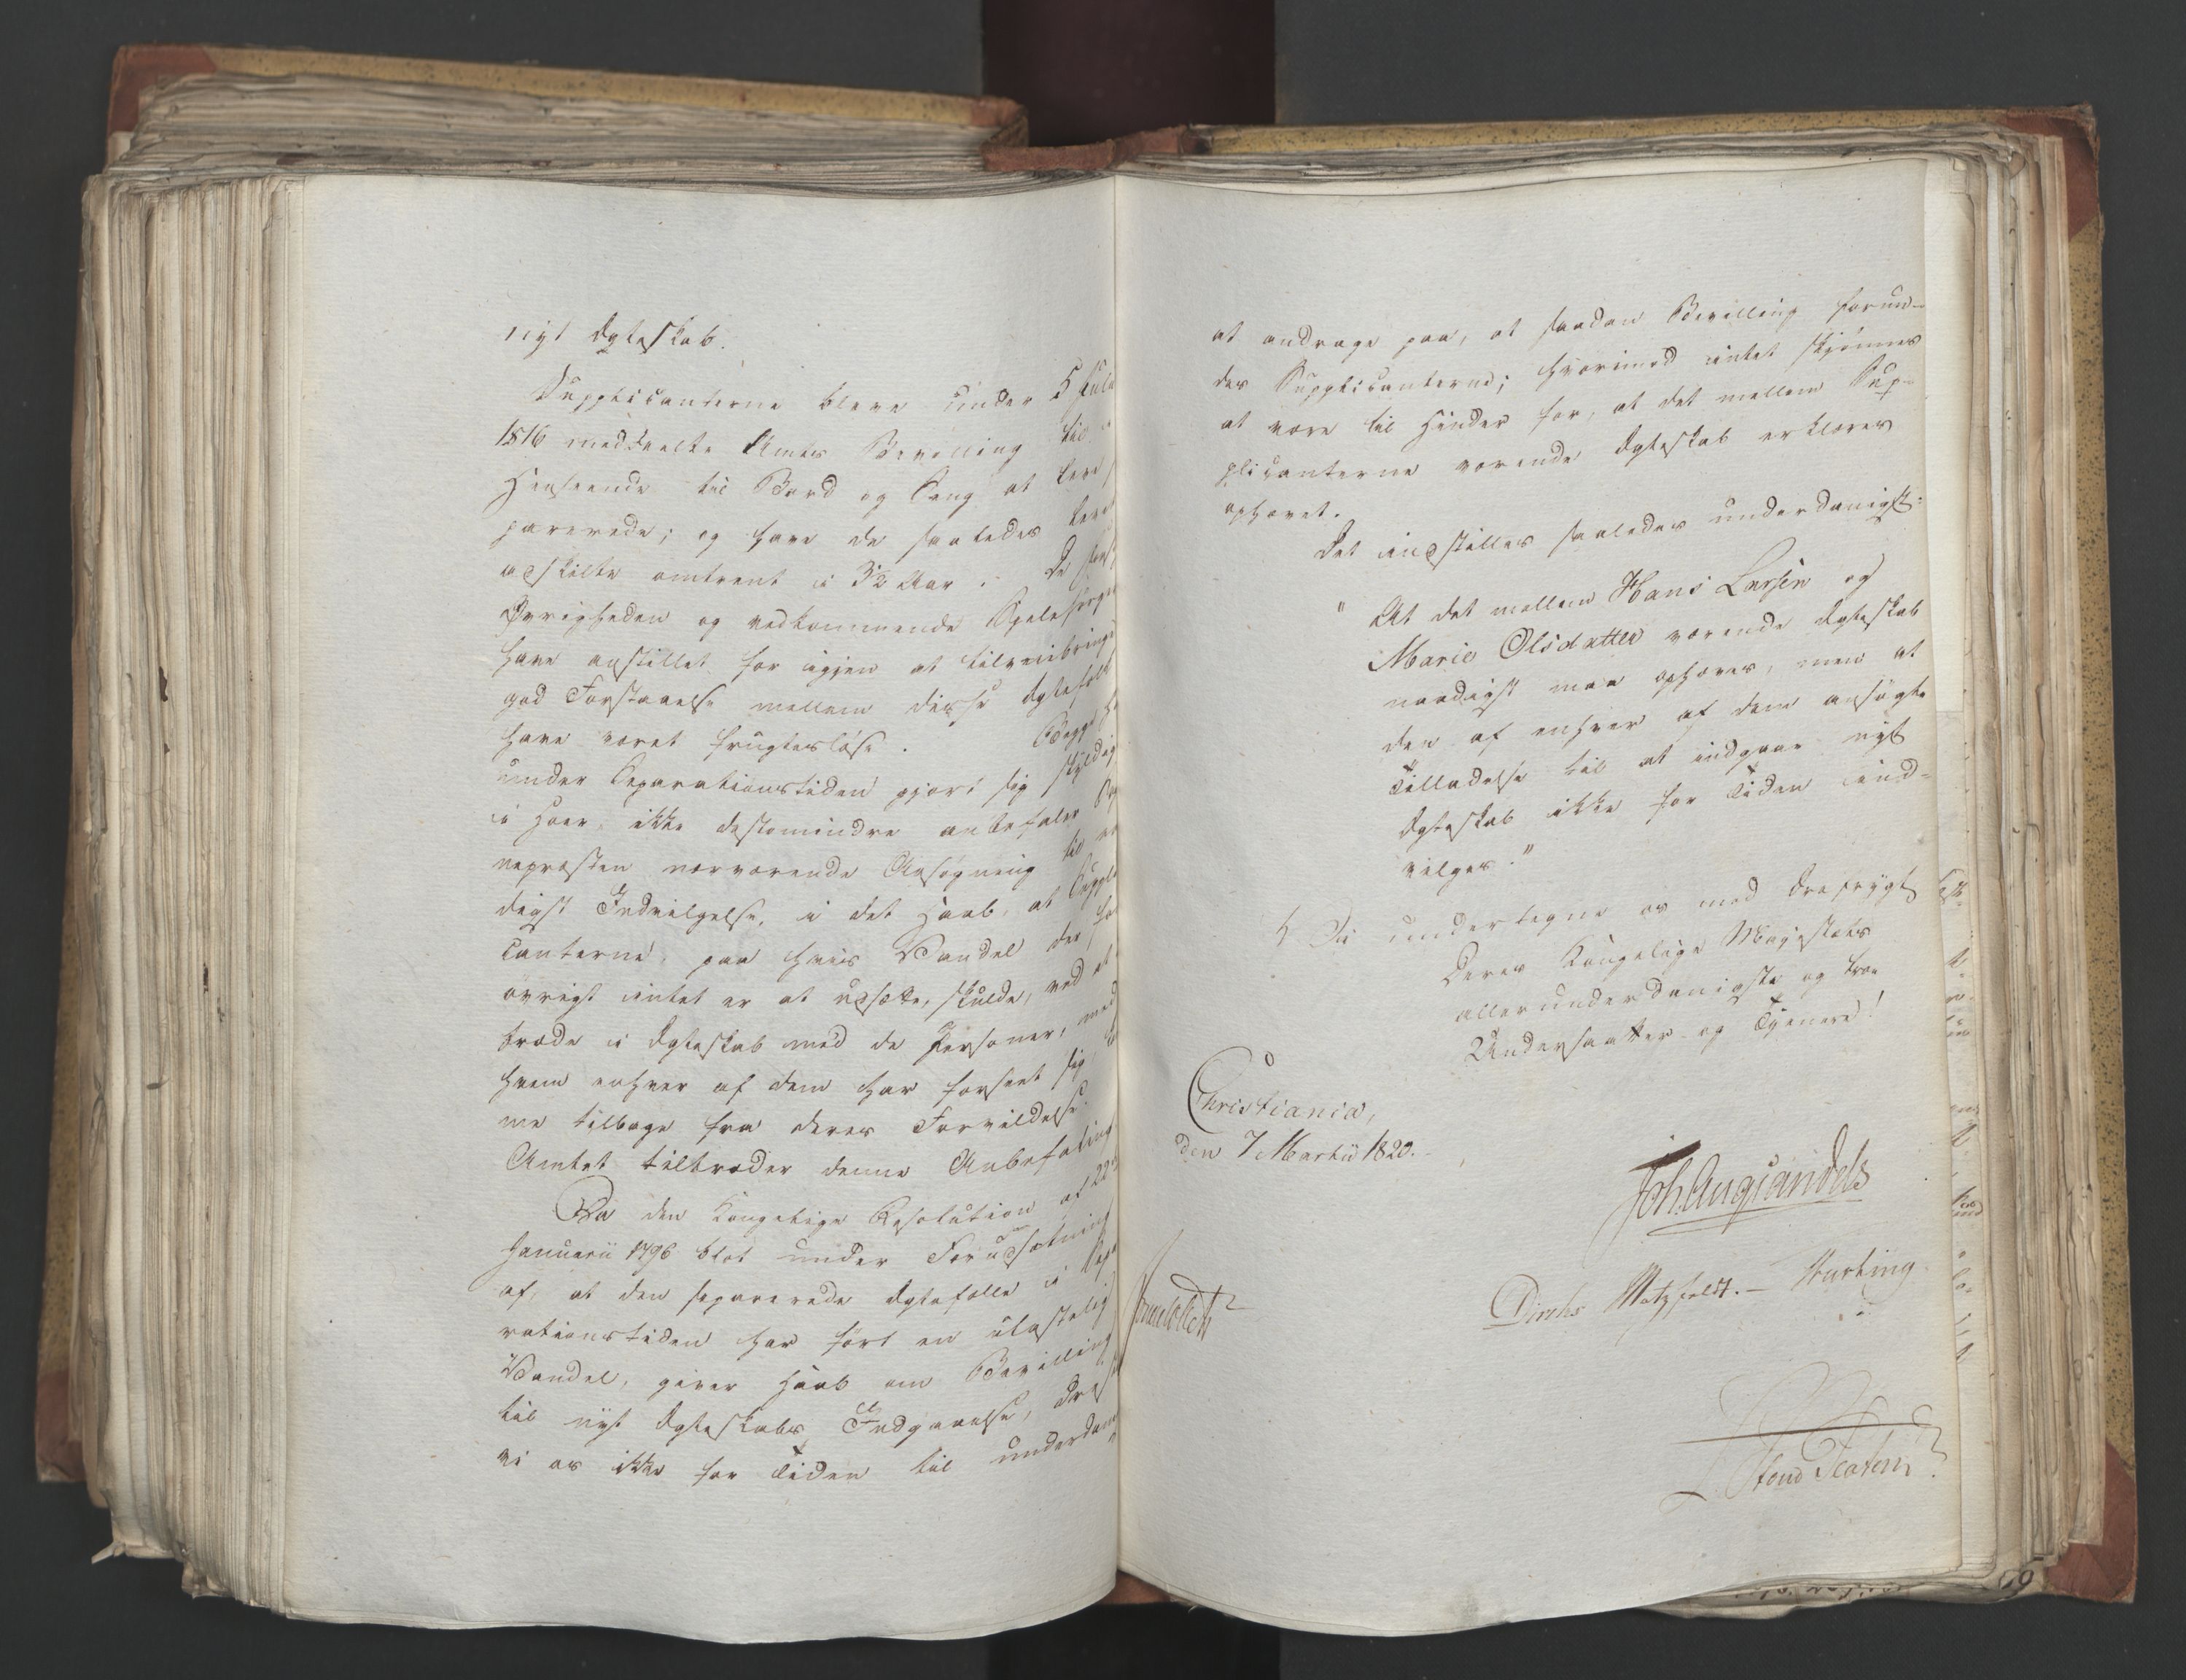 nyt Ægteskab.
Supplicanterne bleve under 5 Julii
1816 meddeelte Amts Bevilling til i
Henseende til Bord og Seng at leve se-
parerede; og have de saaledes levet
adskilte omtrent i 3½ Aar. De
Øvrigheden og vedkommende Sjelesørger
have anstillet for igjen at tilveiebringe
god Forstaaelse mellem disse Ægtefolk
have været frugtesløse. Begge
under Separationstiden gjort sig skyldig
i Hoer, ikke destomindre anbefaler
nepræsten nærværende Ansøgning til
digst Indvilgelse, i det Haab, at Suppli-
canterne, paa hvis Vandel der for
øvrigt intet er at udsætte, skulde, ved at
træde i Ægteskab med de Personer, med
hvem enhver af dem har forseet sig
me tilbage fra deres Forvildelse.
Amtet tiltræder denne Anbefaling
Da den Kongelige Resolution af 22de
Januarii 1796 blot under Forudsætning
af, at den separerede Ægtefælle i Sepa-
rationstiden har ført en ulastelig
Vandel, giver Haab om Bevilling
til nyt Ægteskabs Indgaaelse, driste
vi os ikke for Tiden til underdan
at andrage paa, at saadan Bevilling forun-
des Supplicanterne; hvorimod intet skjønnes
at være til Hinder for, at det mellem Sup-
plicanterne værende Ægteskab erklæres
ophævet.
Det indstilles saaledes underdanigst:
"At det mellem Hans Larsen og
Marie Olsdatter værende Ægteskab
naadigst maa ophæves, men at
den af enhver af dem ansøgte
Tilladelse til at indgaae nyt
Ægteskab ikke for Tiden ind-
vilges."
Vi undertegne os med Ærefrygt
Deres Kongelige Majestæts
allerunderdanigste og troe
Undersaatter og Tjenere!
Christiania,
den 7 Martii 1820.
Joh. Aug. Sandels
Diriks Motzfeldt. - Hartmann